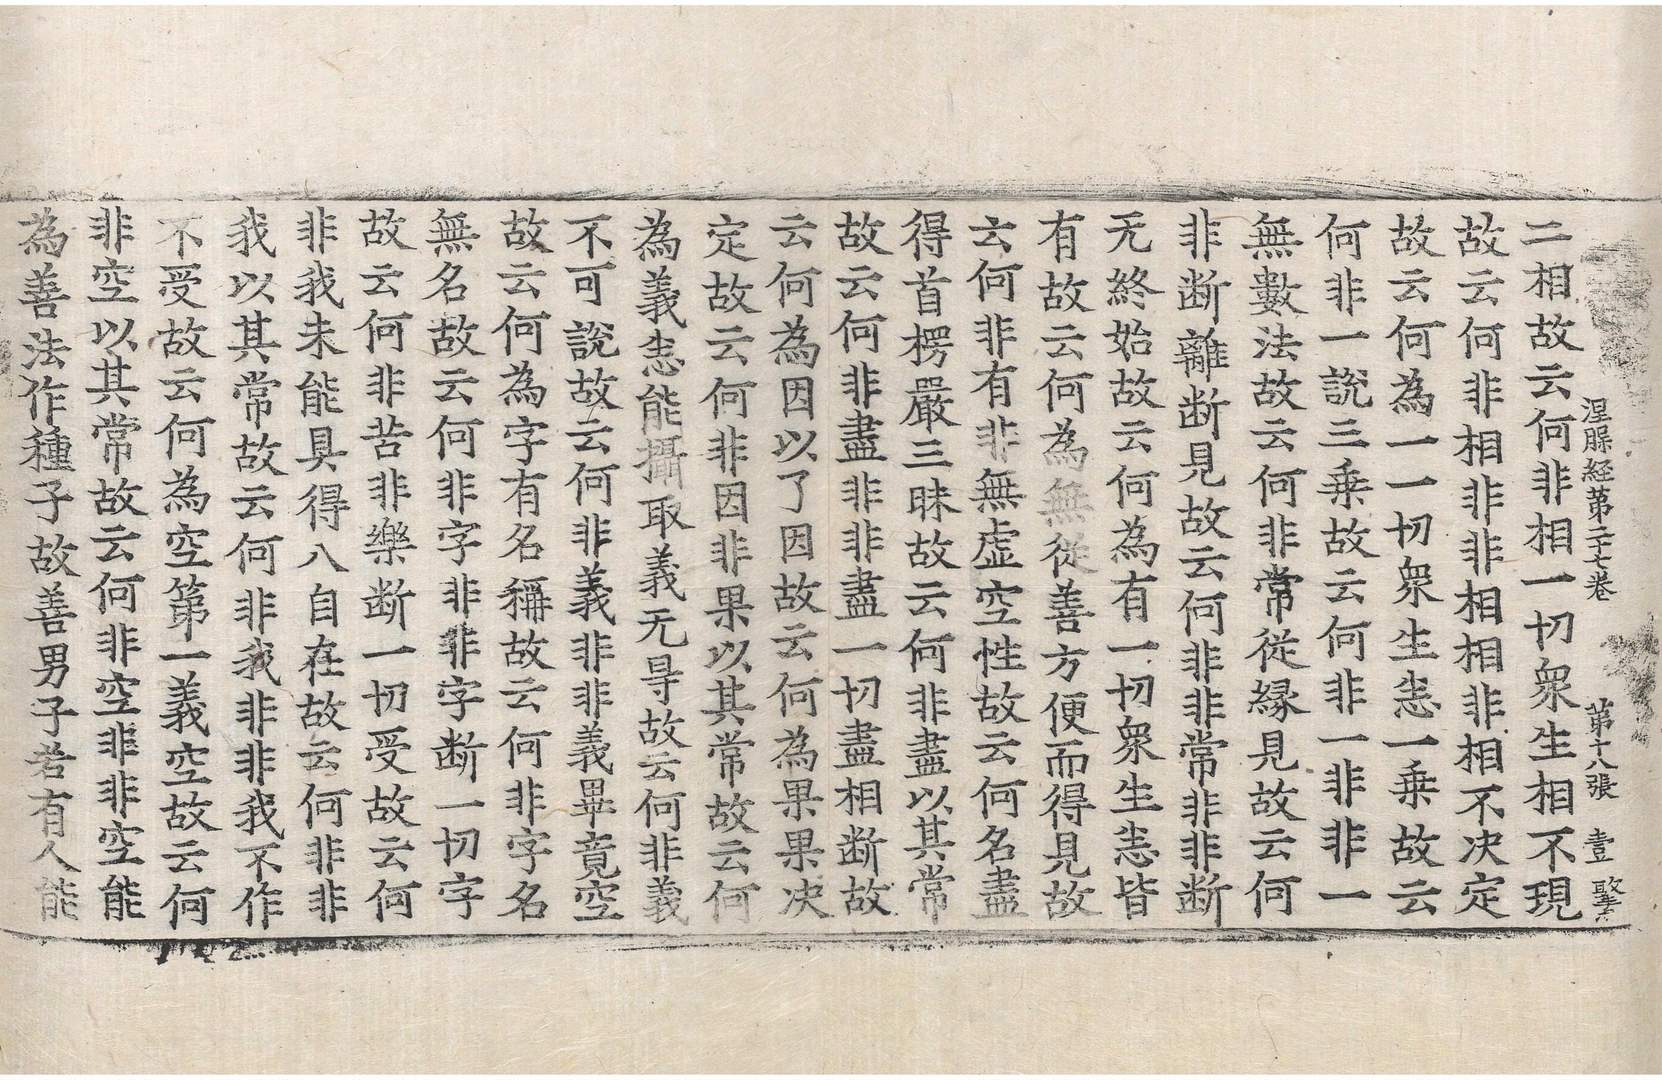 涅槃経第二十七卷 第十八張 壹
二相故云何非相一切衆生相不現
故云何非相非非相相非相不决定
故云何為一一切衆生悉一乗故云
何非一説三乗故云何非一非非一
無數法故云何非常從縁見故云何
非断離断見故云何非非常非非断
无終始故云何為有一切衆生悉皆
有故云何為無從善方便而得見故
云何非有非無虚空性故云何名盡
得首楞嚴三昧故云何非盡以其常
故云何非盡非非盡一切盡相断故
云何為因以了因故云何為果果决
定故云何非因非果以其常故云何
為義悉能攝取義无㝵故云何非義
不可說故云何非義非非義畢竟空
故云何為字有名稱故云何非字名
無名故云何非字非非字断一切字
故云何非苦非樂断一切受故云何
非我未能具得八自在故云何非非
我以其常故云何非我非非我不作
不受故云何為空第一義空故云何
非空以其常故云何非空非非空能
為善法作種子故善男子若有人能